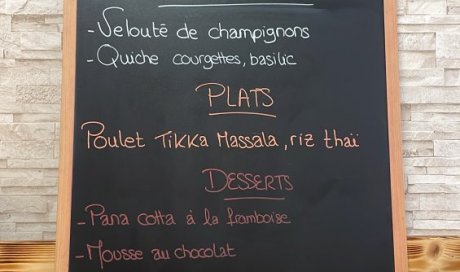 - Velouté de champignons
- Quiche courgettes, basilic
PLATS
Poulet Tikka Massala, riz thaï
DESSERTS
- Pana cotta à la framboise
- Mousse au chocolat